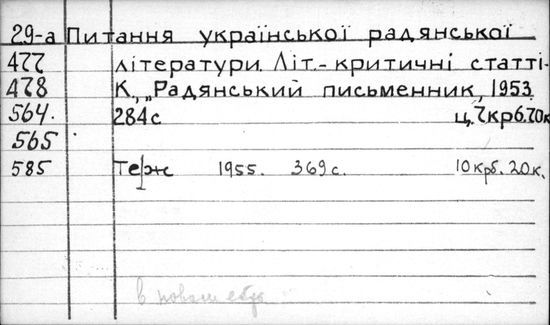 29-а Питання української радянської
477 літератури. Літ.-критичні статті-
478 К., „Радянський письменник, 1953
564. 284с ц. 7крб.70к
565
585 Те/рж 1955. 369с. 10крб. 20к.
в